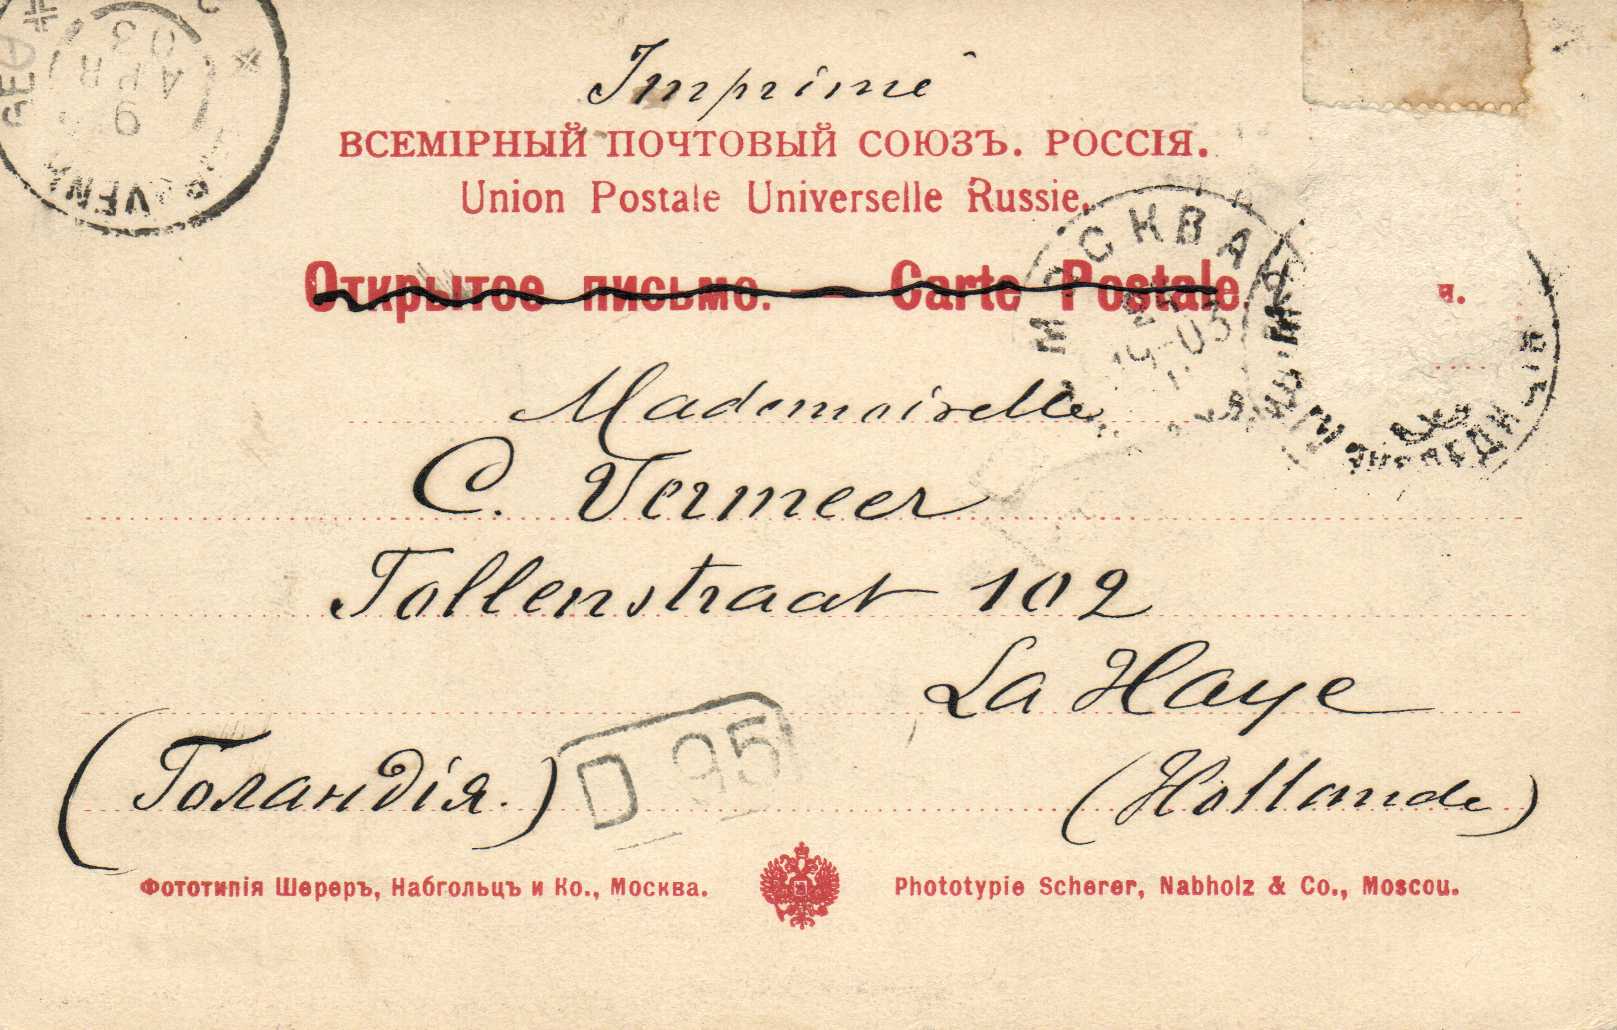 Imprimé
ВСЕМІРНЫЙ ПОЧТОВЫЙ СОЮЗЪ. РОССІЯ.
Union Postale Universelle Russie.
Открытое письмо. — Carte Postale
МОСКВА
Mademoiselle
C. Vermeer
Tollenstraat 102
La Haye
(Голандія.)
(Hollande)
D 95
Фототипія Шереръ, Набгольцъ и Ко., Москва.
Phototypie Scherer, Nabholz & Co., Moscou.
9
APR
03